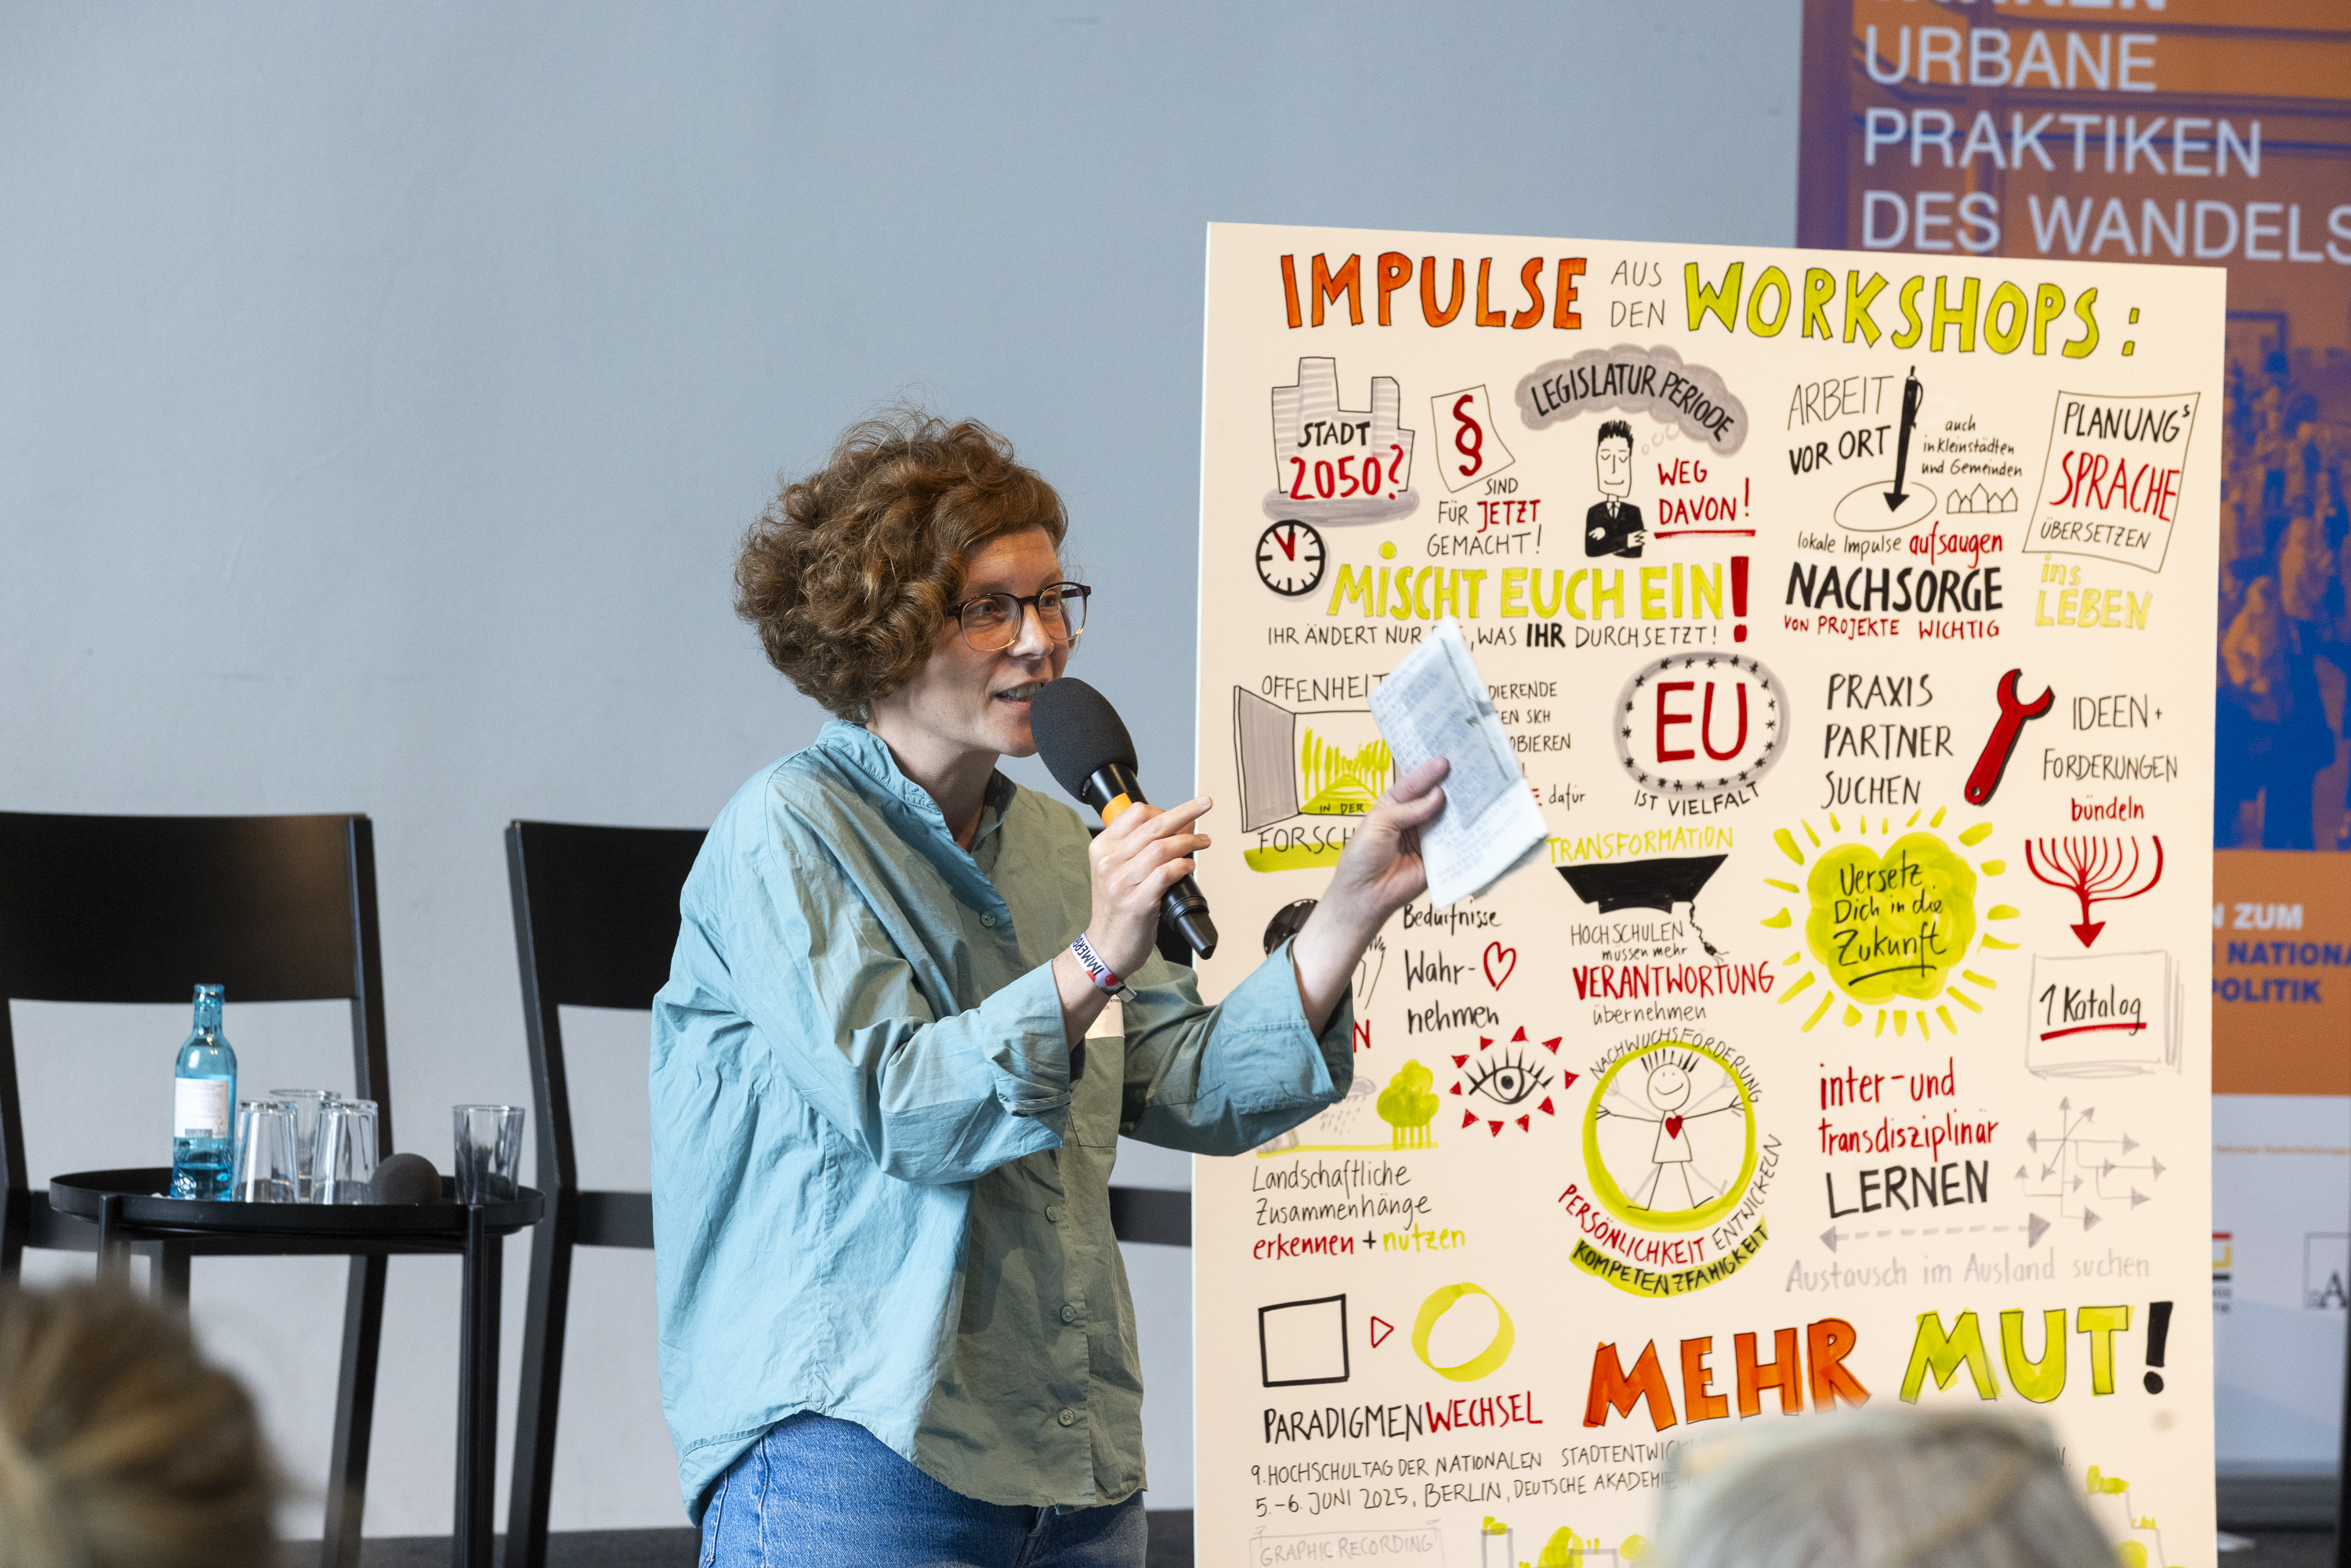 URBANE
PRAKTIKEN
DES WANDELS
IMPULSE AUS DEN WORKSHOPS:
STADT
2050?
§
SIND
FÜR JETZT
GEMACHT!
LEGISLATURPERIODE
WEG
DAVON!
ARBEIT
VOR ORT
auch
in Kleinstädten
und Gemeinden
lokale Impulse aufsaugen
NACHSORGE
VON PROJEKTE WICHTIG
PLANUNGS
SPRACHE
ÜBERSETZEN
ins
LEBEN
MISCHT EUCH EIN!
IHR ÄNDERT NUR, WAS IHR DURCHSETZT!
OFFENHEIT
IN DER
EU
IST VIELFALT
PRAXIS
PARTNER
SUCHEN
IDEEN +
FORDERUNGEN
bündeln
1 Katalog
dafür
TRANSFORMATION
HOCHSCHULEN
müssen mehr
VERANTWORTUNG
übernehmen
Versetz
Dich in die
Zukunft
Bedürfnisse
Wahr-
nehmen
NACHWUCHSFÖRDERUNG
PERSÖNLICHKEIT ENTWICKELN
KOMPETENZFÄHIGKEIT
inter- und
transdisziplinär
LERNEN
Austausch im Ausland suchen
Landschaftliche
Zusammenhänge
erkennen + nutzen
PARADIGMENWECHSEL
MEHR MUT!
9. HOCHSCHULTAG DER NATIONALEN
5.-6. JUNI 2025, BERLIN, DEUTSCHE AKADEMIE
GRAPHIC RECORDING
ZUM
POLITIK